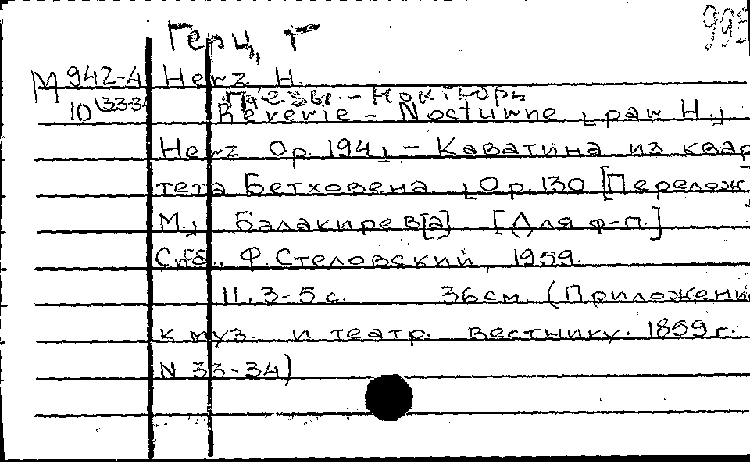 Герц, Г
М 942-4 Herz H.
10 33-34 Пьесы. - Ноктюрн
Reverie - Nocturne , par H.,
Herz Op. 194, - Каватина из квар
тета Бетховена , Op. 130 [Перелож
М., Балакирев[а] [Для ф-п.]
Спб., Ф. Стелловский, 1959.
11, 3-5 с. 36 см (Приложени
к муз. и театр. вестнику. 1859 г.
N 33-34)